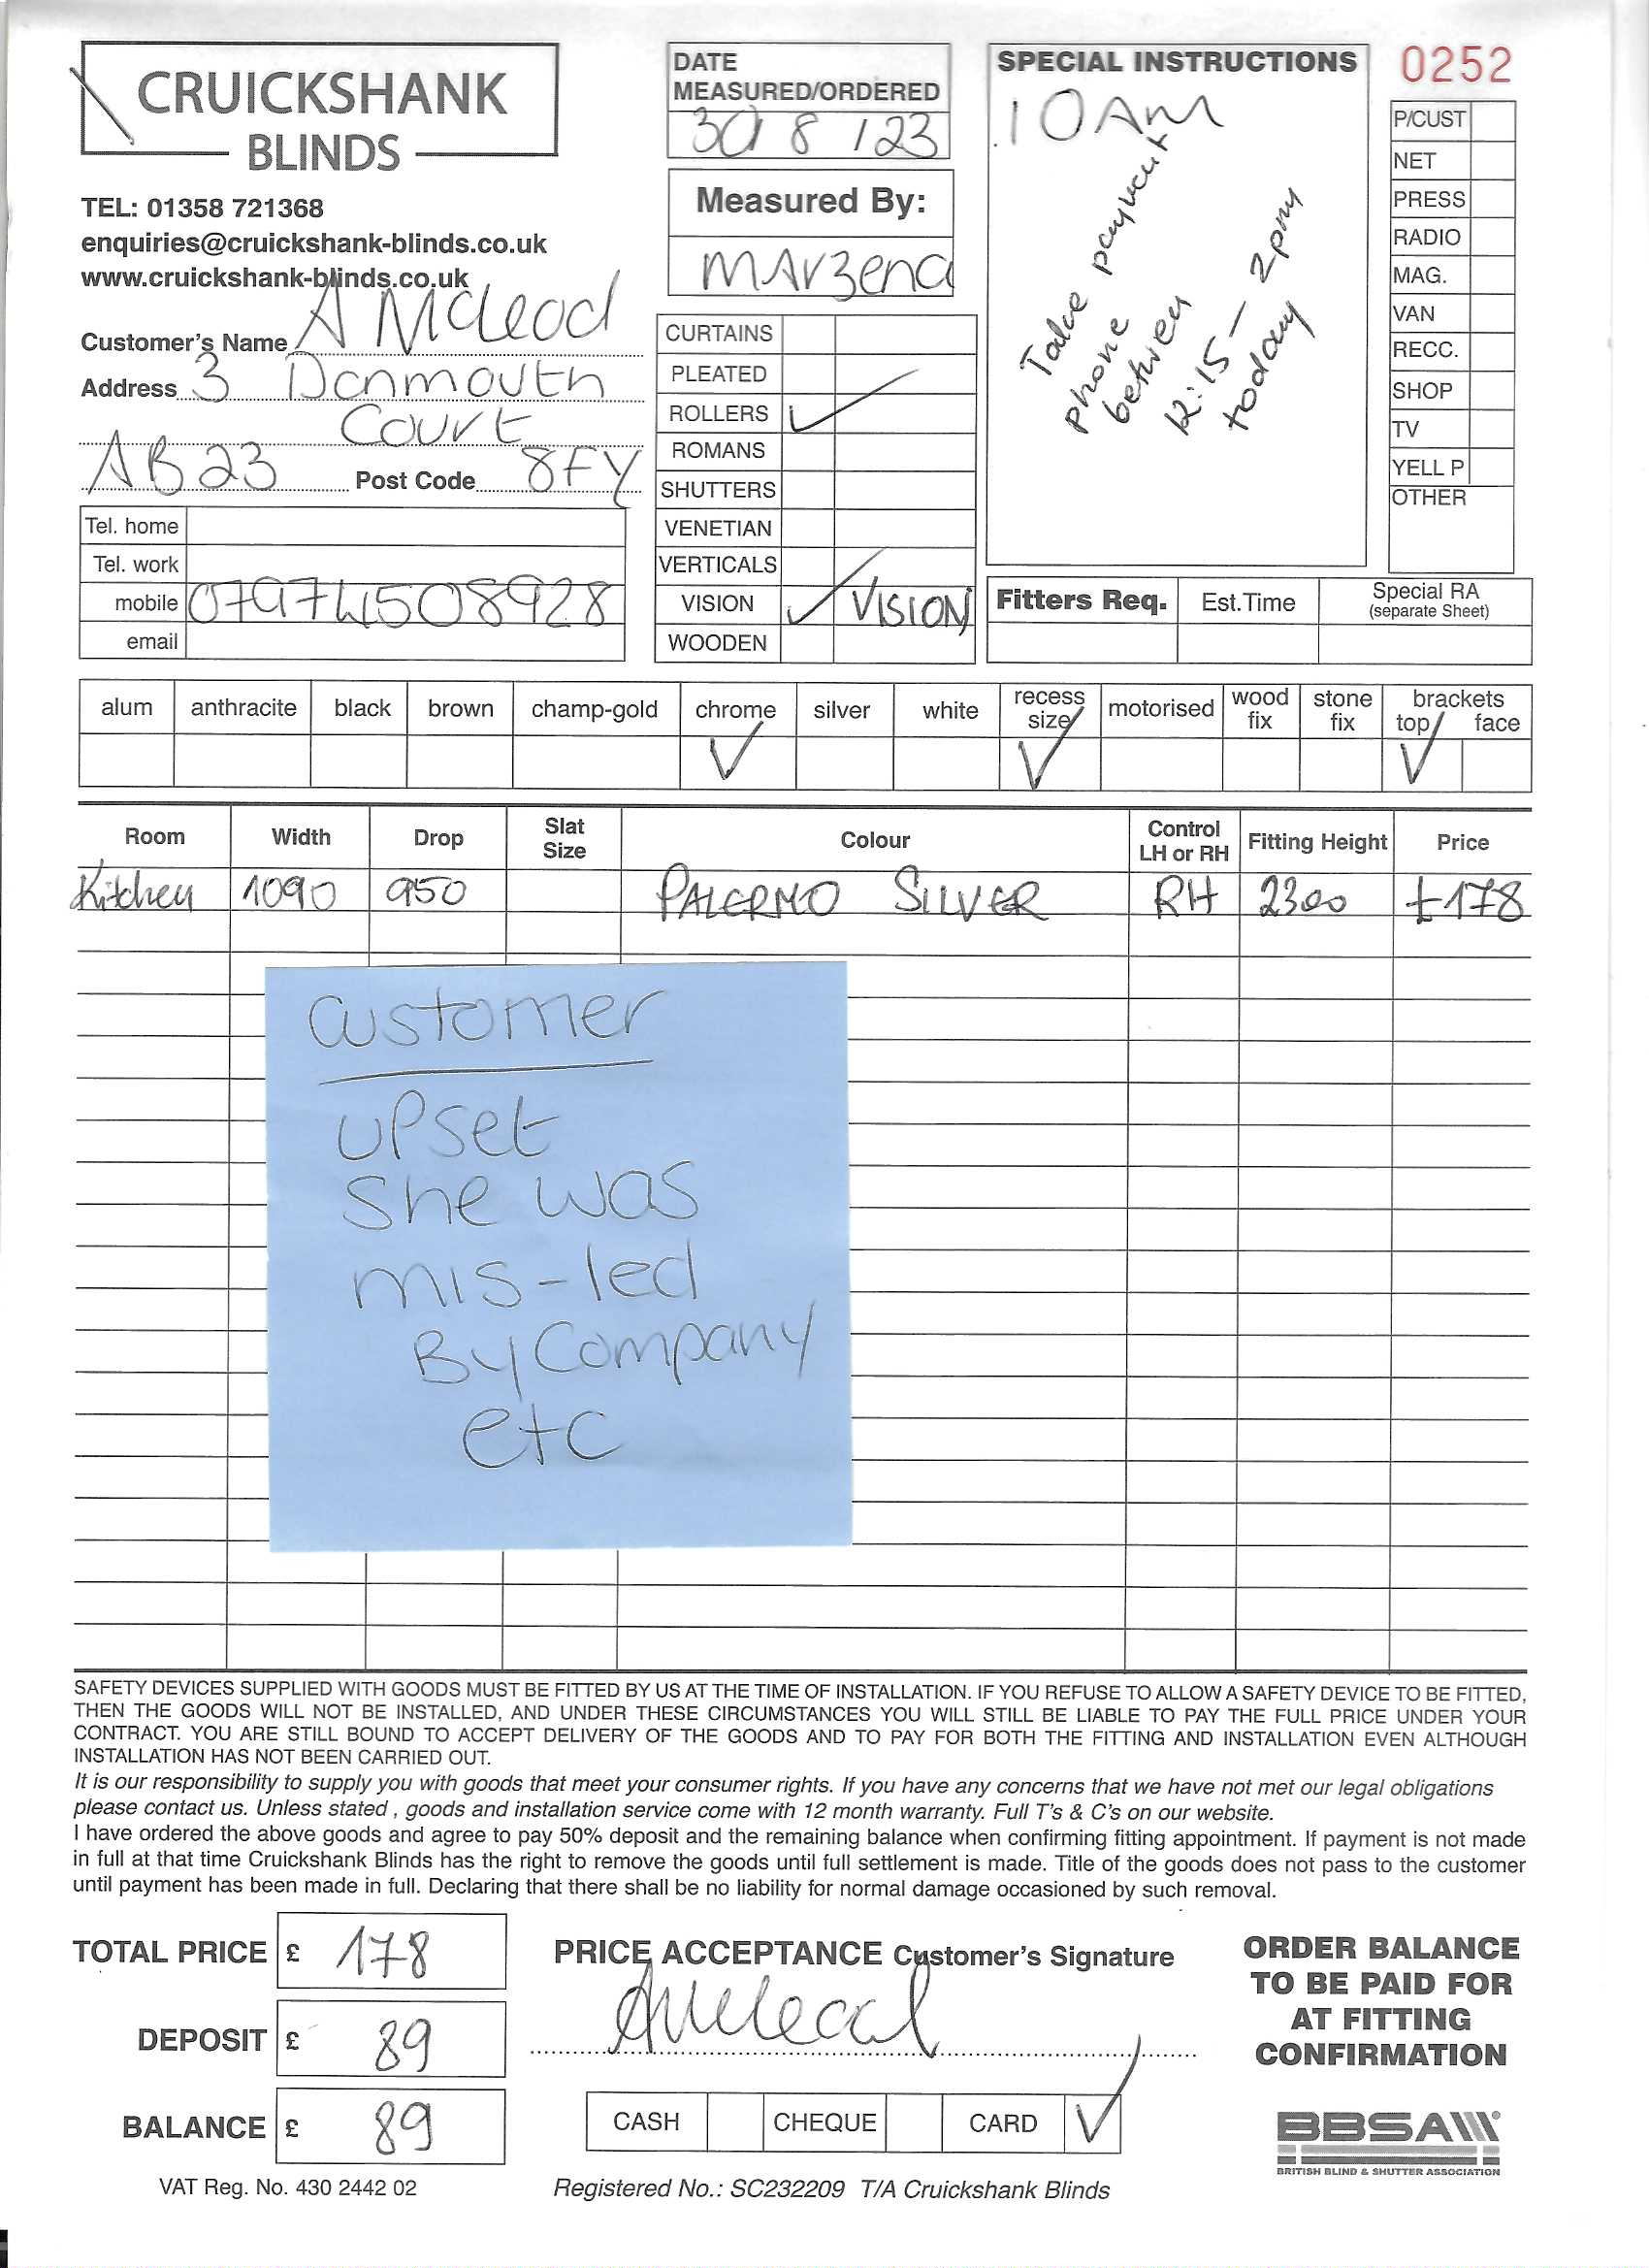 CRUICKSHANK
BLINDS
TEL: 01358 721368
enquiries@cruickshank-blinds.co.uk
www.cruickshank-blinds.co.uk
Customer's Name A McLeod
Address 3 Donmouth
Court
AB23 Post Code 8FY
Tel. home
Tel. work
mobile 07974508928
email
DATE
MEASURED/ORDERED
30/8/23
Measured By:
MArzena
CURTAINS
PLEATED
ROLLERS ✓
ROMANS
SHUTTERS
VENETIAN
VERTICALS
VISION ✓ VISION
WOODEN
SPECIAL INSTRUCTIONS
10AM
Take payment
phone
between
12:15 - 2pm
today
0252
P/CUST
NET
PRESS
RADIO
MAG.
VAN
RECC.
SHOP
TV
YELL P
OTHER
Fitters Req. Est.Time Special RA
(separate Sheet)
alum anthracite black brown champ-gold chrome ✓ silver white recess size ✓ motorised wood fix stone fix brackets top ✓ face
Room Width Drop Slat Size Colour Control LH or RH Fitting Height Price
Kitchen 1090 950 PALERMO SILVER RH 2300 £178
Customer
upset
She was
mis-led
By Company
etc
SAFETY DEVICES SUPPLIED WITH GOODS MUST BE FITTED BY US AT THE TIME OF INSTALLATION. IF YOU REFUSE TO ALLOW A SAFETY DEVICE TO BE FITTED,
THEN THE GOODS WILL NOT BE INSTALLED, AND UNDER THESE CIRCUMSTANCES YOU WILL STILL BE LIABLE TO PAY THE FULL PRICE UNDER YOUR
CONTRACT. YOU ARE STILL BOUND TO ACCEPT DELIVERY OF THE GOODS AND TO PAY FOR BOTH THE FITTING AND INSTALLATION EVEN ALTHOUGH
INSTALLATION HAS NOT BEEN CARRIED OUT.
It is our responsibility to supply you with goods that meet your consumer rights. If you have any concerns that we have not met our legal obligations
please contact us. Unless stated , goods and installation service come with 12 month warranty. Full T's & C's on our website.
I have ordered the above goods and agree to pay 50% deposit and the remaining balance when confirming fitting appointment. If payment is not made
in full at that time Cruickshank Blinds has the right to remove the goods until full settlement is made. Title of the goods does not pass to the customer
until payment has been made in full. Declaring that there shall be no liability for normal damage occasioned by such removal.
TOTAL PRICE £ 178
DEPOSIT £ 89
BALANCE £ 89
VAT Reg. No. 430 2442 02
PRICE ACCEPTANCE Customer's Signature
AMcleod
CASH CHEQUE CARD ✓
Registered No.: SC232209 T/A Cruickshank Blinds
ORDER BALANCE
TO BE PAID FOR
AT FITTING
CONFIRMATION
BBSA
BRITISH BLIND & SHUTTER ASSOCIATION